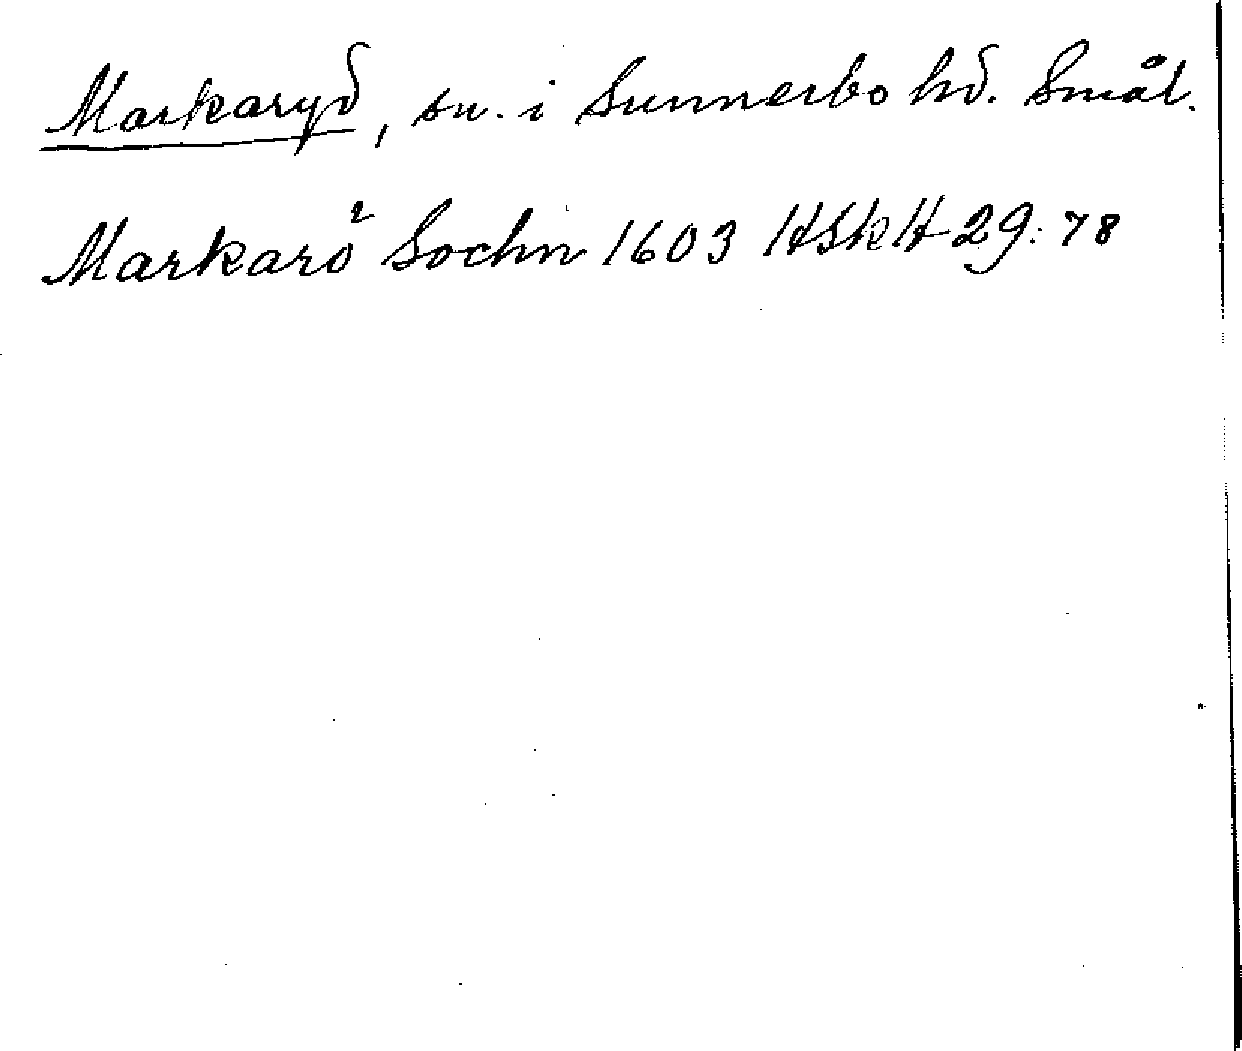 Markaryd, sn. i Sunnerbo hd. Smål.
Markarö Sochn 1603 HSkH 29:78